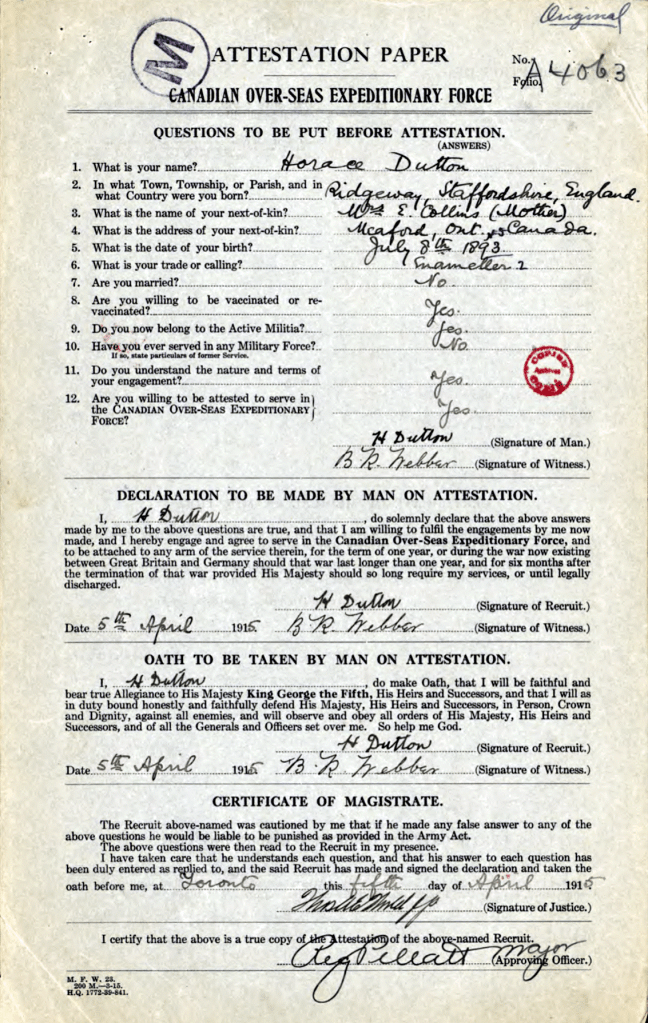 Original
M
ATTESTATION PAPER
No. A4063
Folio.
CANADIAN OVER-SEAS EXPEDITIONARY FORCE
QUESTIONS TO BE PUT BEFORE ATTESTATION.
(ANSWERS)
1. What is your name? Horace Dutton
2. In what Town, Township, or Parish, and in
what Country were you born? Ridgeway, Staffordshire, England.
3. What is the name of your next-of-kin? Mrs E. Collins (Mother)
4. What is the address of your next-of-kin? Meaford, Ont. Canada.
5. What is the date of your birth? July 8th 1893
6. What is your trade or calling? Enameller
7. Are you married? No.
8. Are you willing to be vaccinated or re-
vaccinated? Yes.
9. Do you now belong to the Active Militia? Yes.
10. Have you ever served in any Military Force? No
If so, state particulars of former Service.
11. Do you understand the nature and terms of
your engagement? Yes.
COPIED
12. Are you willing to be attested to serve in
the CANADIAN OVER-SEAS EXPEDITIONARY
FORCE? Yes.
H Dutton (Signature of Man.)
B. R. Webber (Signature of Witness.)
DECLARATION TO BE MADE BY MAN ON ATTESTATION.
I, H Dutton, do solemnly declare that the above answers
made by me to the above questions are true, and that I am willing to fulfil the engagements by me now
made, and I hereby engage and agree to serve in the Canadian Over-Seas Expeditionary Force, and
to be attached to any arm of the service therein, for the term of one year, or during the war now existing
between Great Britain and Germany should that war last longer than one year, and for six months after
the termination of that war provided His Majesty should so long require my services, or until legally
discharged.
H Dutton (Signature of Recruit.)
Date 5th April 1915 B R Webber (Signature of Witness.)
OATH TO BE TAKEN BY MAN ON ATTESTATION.
I, H Dutton, do make Oath, that I will be faithful and
bear true Allegiance to His Majesty King George the Fifth, His Heirs and Successors, and that I will as
in duty bound honestly and faithfully defend His Majesty, His Heirs and Successors, in Person, Crown
and Dignity, against all enemies, and will observe and obey all orders of His Majesty, His Heirs and
Successors, and of all the Generals and Officers set over me. So help me God.
H Dutton (Signature of Recruit.)
Date 5th April 1915 B. R. Webber (Signature of Witness.)
CERTIFICATE OF MAGISTRATE.
The Recruit above-named was cautioned by me that if he made any false answer to any of the
above questions he would be liable to be punished as provided in the Army Act.
The above questions were then read to the Recruit in my presence.
I have taken care that he understands each question, and that his answer to each question has
been duly entered as replied to, and the said Recruit has made and signed the declaration and taken the
oath before me, at Toronto this fifth day of April 1915
(Signature of Justice.)
I certify that the above is a true copy of the Attestation of the above-named Recruit.
Reg Pellatt Major (Approving Officer.)
M. F. W. 23.
200 M.—3-15.
H.Q. 1772-39-841.